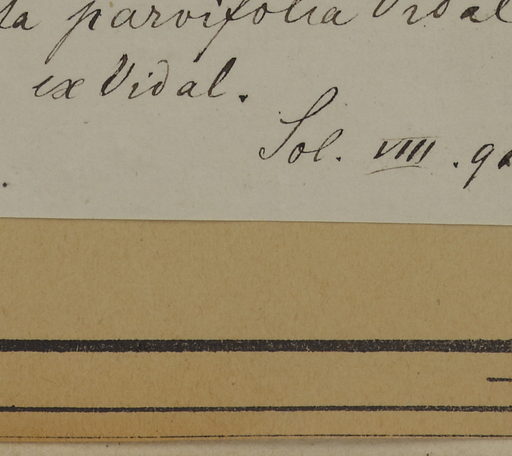 parvifolia Vidal
ex Vidal.
Sol. VIII. 9